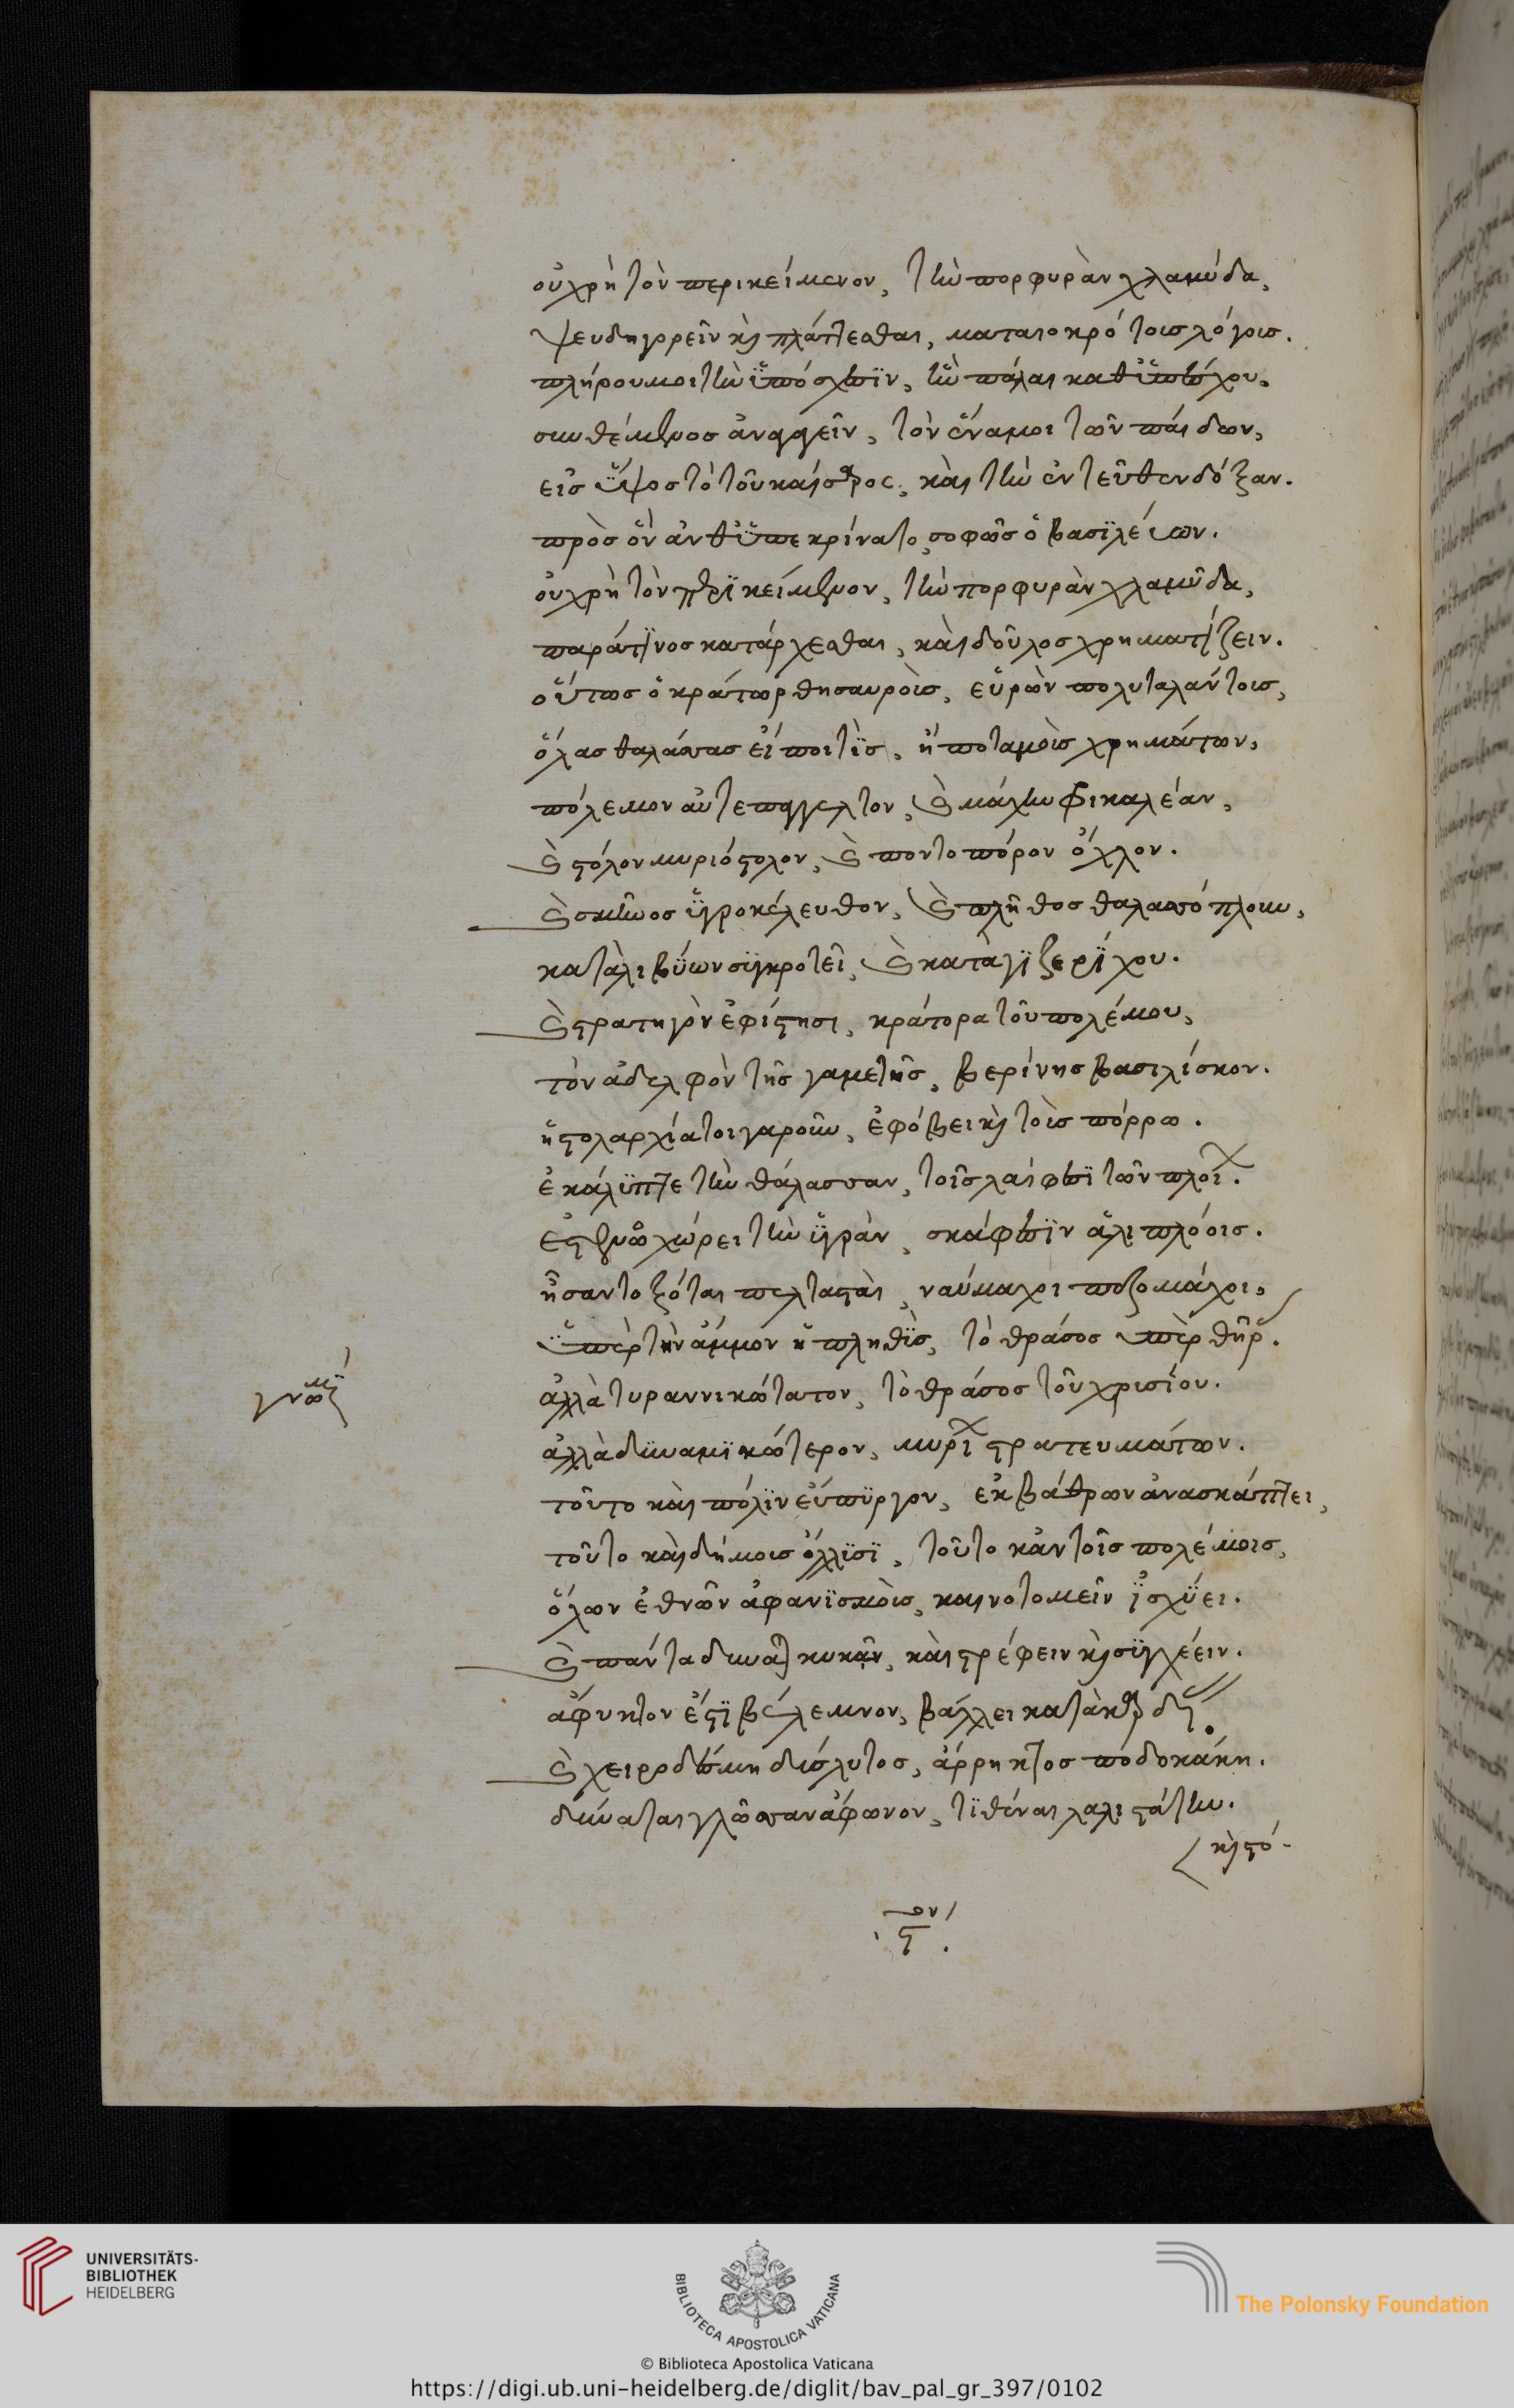 οὐ χρὴ τὸν περικείμενον, τὴν πορφυρὰν χλαμύδα,
ψευδηγορεῖν καὶ πλάττεσθαι, ματαιοκρότοις λόγοις.
πλήρου μοι τὴν ὑπόσχεσϊν, ἣν πάλαι καθϋπέσχου,
συνθέμενος ἀναγαγεῖν, τὸν ἕνα μοι τῶν παίδων,
εἰς ὕψος τὸ τοῦ καίσαρος, καὶ τὴν ἐντεῦθεν δόξαν.
πρὸς ὃν ἀνθϋπεκρίνατο, σοφῶς ὁ βασϊλεύων.
οὐ χρὴ τὸν περϊκείμενον, τὴν πορφυρὰν χλαμύδα,
παρά τϊνος κατάρχεσθαι, καὶ δοῦλος χρηματίζειν.
οὕτως ὁ κράτωρ θησαυροῖς, εὑρὼν πολυταλάντοις,
ὅλας θαλάσσας εἴποι τϊς, ἢ ποταμοῖς χρημάτων,
πόλεμον αὐτεπάγγελτον, καὶ μάχην φικαλέαν,
καὶ στόλον μυριόστολον, καὶ ποντοπόρον ὄχλον.
καὶ σμῆνος ὑγροκέλευθον, καὶ πλῆθος θαλασσόπλουν,
κατὰ λιβύων συγκροτεῖ, καὶ κατὰ γϊζερίχου.
καὶ στρατηγὸν ἐφίστησι, κράτορα τοῦ πολέμου,
τὸν ἀδελφὸν τῆς γαμετῆς, βερίνης βασιλίσκον.
ἡ στολαρχία τοιγαροῦν, ἐφόβει καὶ τοῖς πόρρω.
ἐκάλϋπτε τὴν θάλασσαν, τοῖς λαίφεσϊ τῶν πλοί.
ἐστενοχώρει τὴν ὑγρὰν, σκάφεσϊν ἁλιπλόοις.
ἦσαν τοξόται πελτασταὶ, ναύμαχοι πεζομάχοι,
ὑπὲρ τὴν ἄμμον ἡ πληθὺς, τὸ θράσος ὑπὲρ θῆρ.
γνώμ
ἀλλὰ τυραννικώτατον, τὸ θράσος τοῦ χρυσίου.
ἀλλὰ δϋναμϊκώτερον, μυρί στρατευμάτων.
τοῦτο καὶ πόλϊν εὔπϋργον, ἐκ βάθρων ἀνασκάπτει,
τοῦτο καὶ δήμοις ὄλλϋσϊ, τοῦτο κἀν τοῖς πολέμοις,
ὅλων ἐθνῶν ἀφανϊσμοῖς, καινοτομεῖν ἰσχύει.
καὶ πάντα δύναται κυκᾶν, καὶ στρέφειν καὶ συγχέειν.
ἄφυκτον ἔστϊ βέλεμνον, βάλλει κατὰ καρδί
καὶ χειροδέσμη δύσλυτος, ἄρρηκτος ποδοκάκη.
δύναται γλῶσσαν ἄφωνον, τϊθέναι λαλιστάτην.
καὶ στό-
ον
ϛ
UNIVERSITÄTS-
BIBLIOTHEK
HEIDELBERG
BIBLIOTECA APOSTOLICA VATICANA
The Polonsky Foundation
© Biblioteca Apostolica Vaticana
https://digi.ub.uni-heidelberg.de/diglit/bav_pal_gr_397/0102